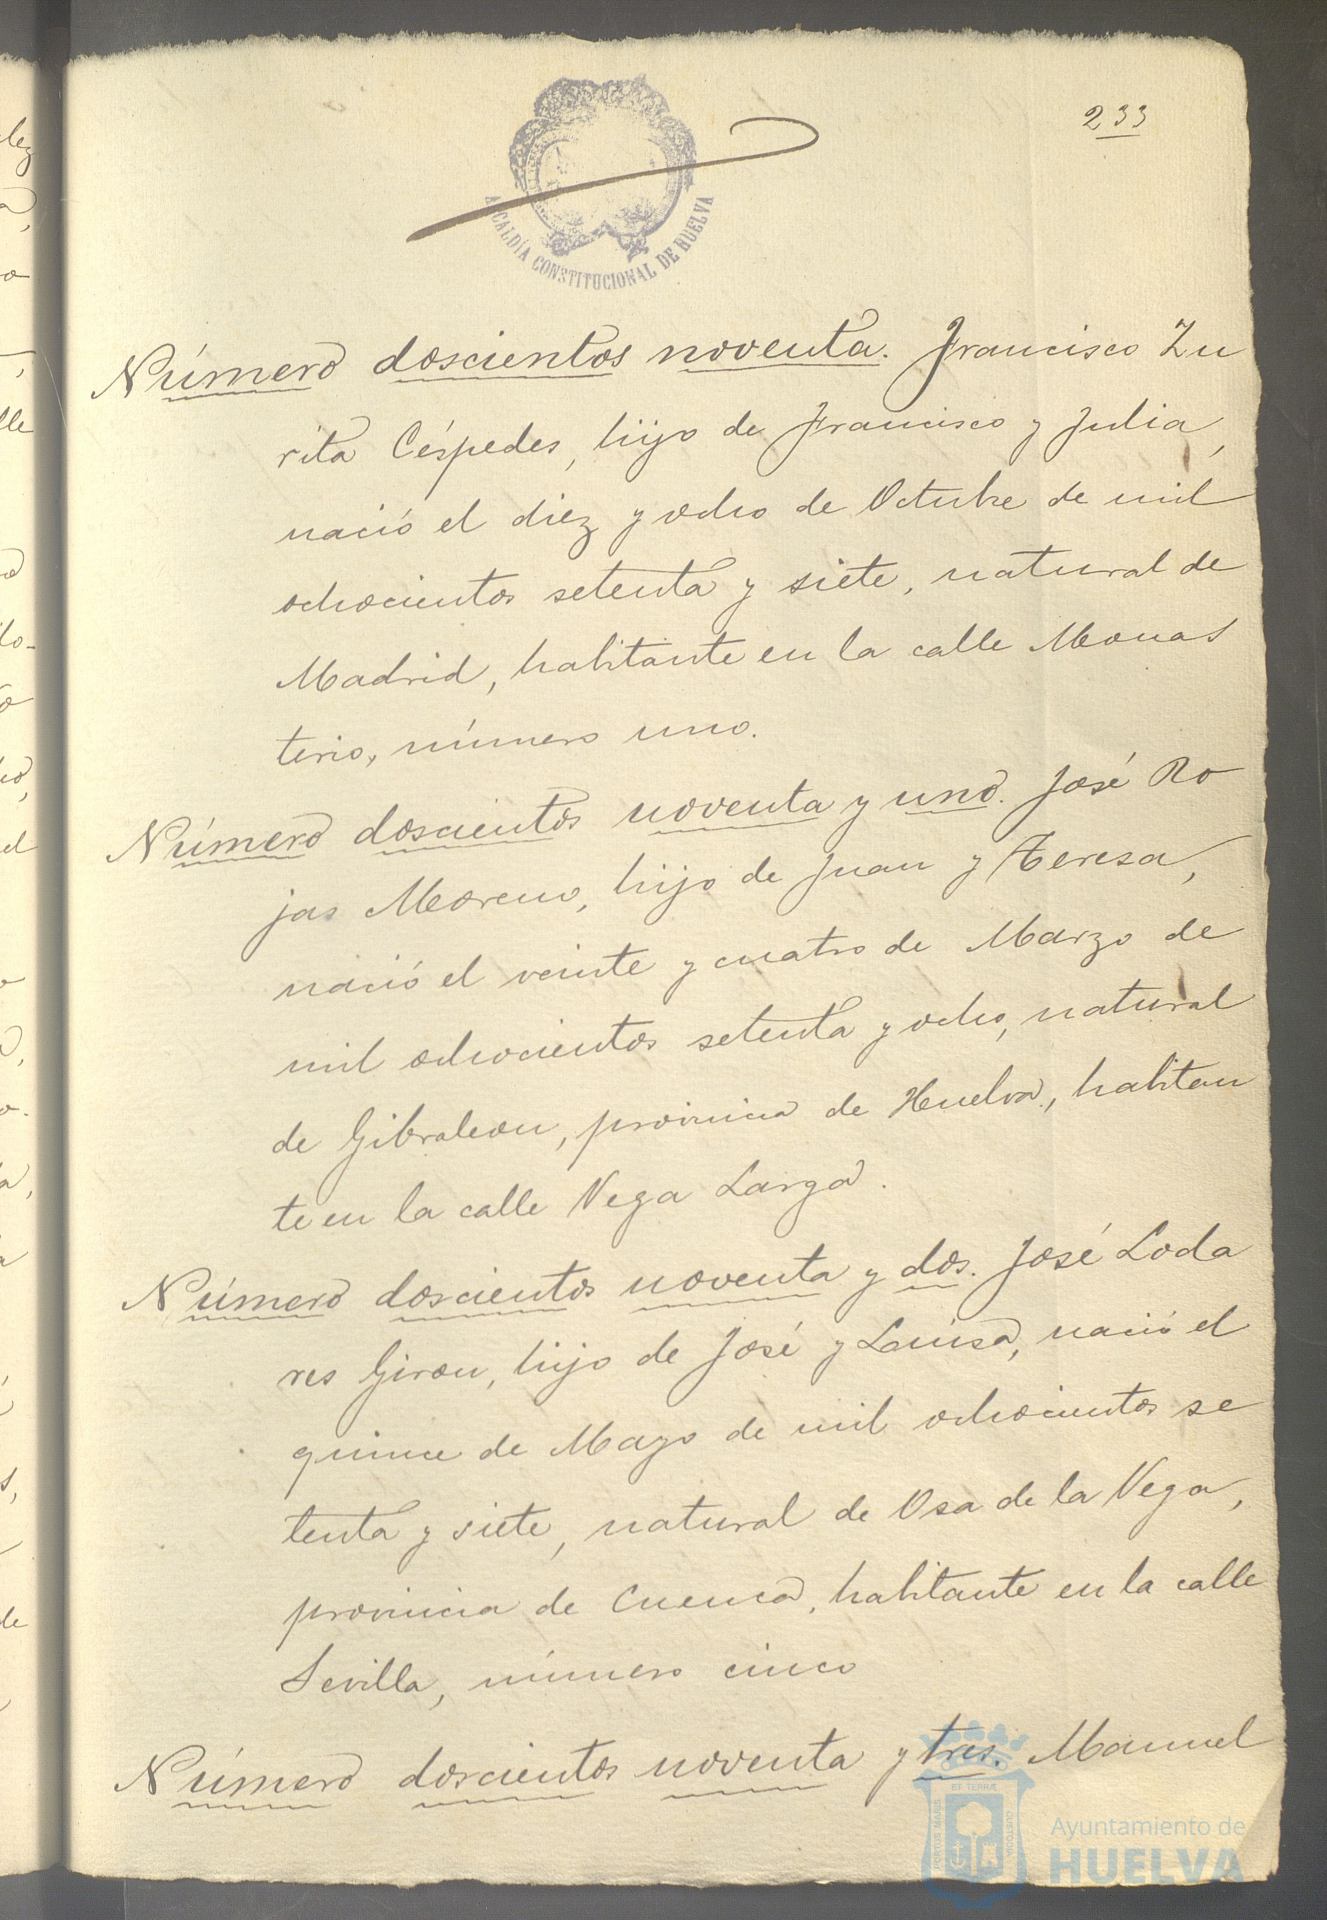 233
ALCALDÍA CONSTITUCIONAL DE HUELVA
Número doscientos noventa. Francisco Zu
rita Céspedes, hijo de Francisco y Julia,
nació el diez y ocho de Octubre de mil
ochocientos setenta y siete, natural de
Madrid, habitante en la calle Monas
terio, número uno.
Número doscientos noventa y uno. José Ro
jas Moreno, hijo de Juan y Teresa,
nació el veinte y cuatro de Marzo de
mil ochocientos setenta y ocho, natural
de Gibraleon, provincia de Huelva, habitan
te en la calle Vega Larga.
Número doscientos noventa y dos. José Loda
res Giron, hijo de José y Luisa, nació el
quince de Mayo de mil ochocientos se
tenta y siete, natural de Osa de la Vega,
provincia de Cuenca, habitante en la calle
Sevilla, número cinco
Número doscientos noventa y tres. Manuel
PORTUS MARIS ET TERRÆ CUSTODIA
Ayuntamiento de
HUELVA